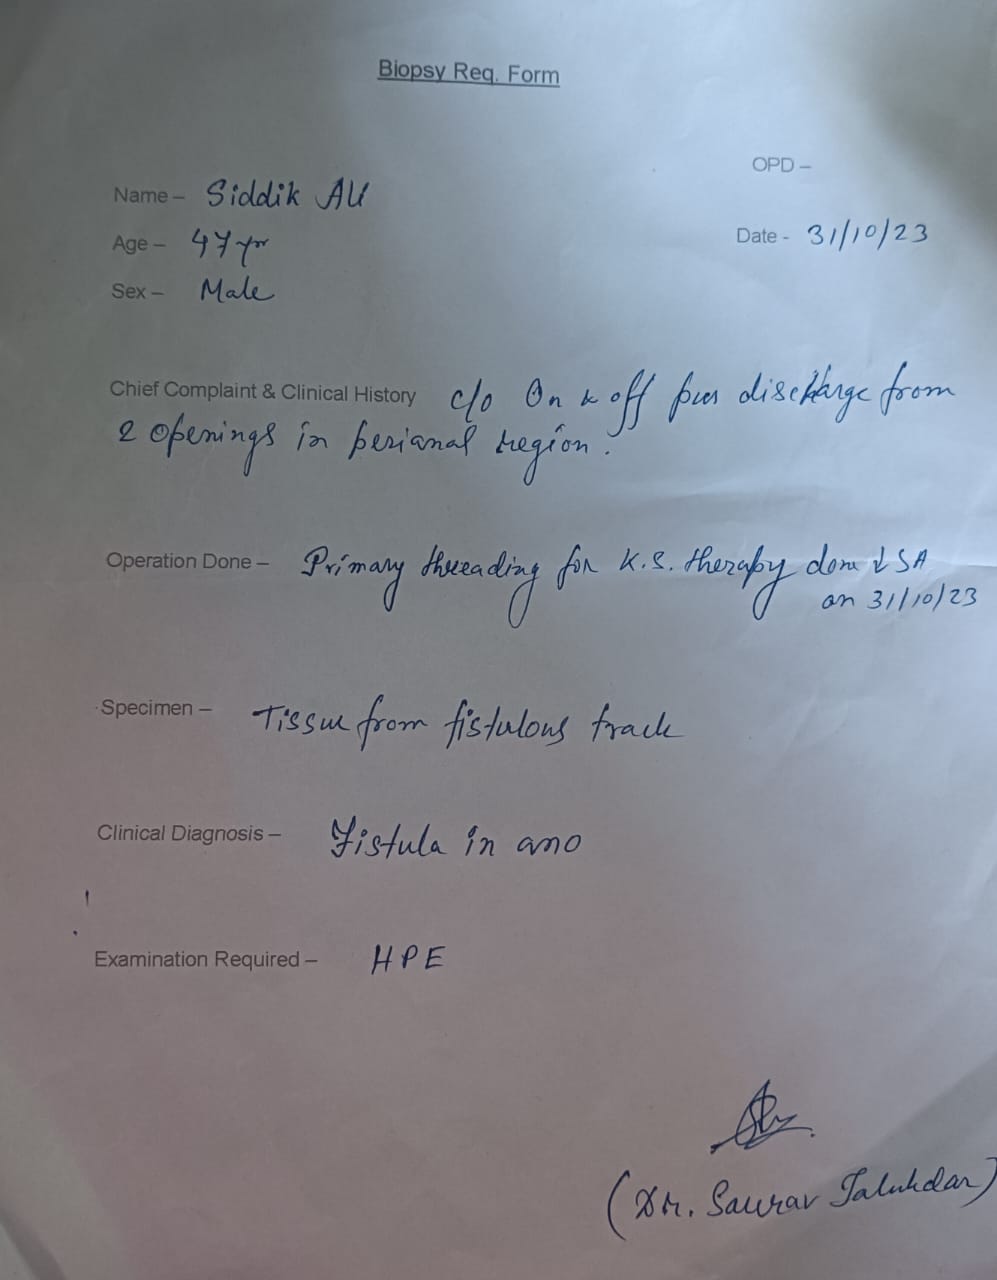 Biopsy Req. Form
OPD –
Name – Siddik Ali
Age – 47 yr
Date - 31/10/23
Sex – Male
Chief Complaint & Clinical History c/o On & off pus discharge from
2 openings in perianal region.
Operation Done – Primary threading for K.S. therapy done ↓ SA
on 31/10/23
Specimen – Tissue from fistulous track
Clinical Diagnosis – Fistula in ano
Examination Required – HPE
(Dr. Saurav Talukdar)